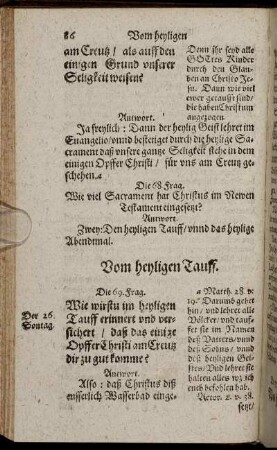 86 Vom heyligen
am Creutz / als auff den
einigen Grund vnserer
Seligkeit weisen?
Denn jhr seyd alle
GOttes Kinder
durch den Glau-
ben an Christo Je-
su. Dann wie viel
ewer getaufft sind /
die haben Christum
angezogen
Antwort.
Ja freylich: Dann der heylig Geist lehret im
Euangelio / vnnd bestetiget durch die heylige Sa-
crament daß vnsere gantze Seligkeit stehe in dem
einigen Opffer Christi / für vns am Creutz ge-
schehen. a
Die 68. Frag.
Wie viel Sacrament hat Christus im Newen
Testament eingesetzt?
Antwort
Zwey: Den heyligen Tauff / vnnd das heylige
Abendtmal.
Vom heyligen Tauff.
Der 26.
Sontag.
Die 69. Frag.
Wie wirstu im heyligen
Tauff erinnert vnd ver-
sichert / daß das einige
Opffer Christi am Creutz
dir zu gut komme?
Antwort.
Also: daß Christus diß
eusserlich Wasserbad einge-
a Matth. 28. v.
19. Darumb gehet
hin / vnd lehret alle
Völcker / vnd tauffet
sie im Namen
deß Vatters / vnd
deß Sohns / vnd
deß heyligen Gei-
stes / Vnd lehret sie
halten alles wz ich
euch befohlen hab.
Actor. 2. v. 38.
setzt /